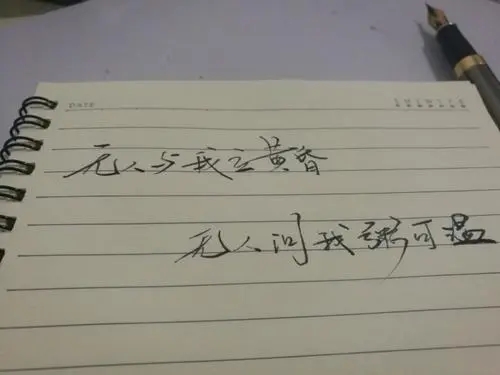 DATE
S M T W T F S
无人与我立黄昏
无人问我粥可温